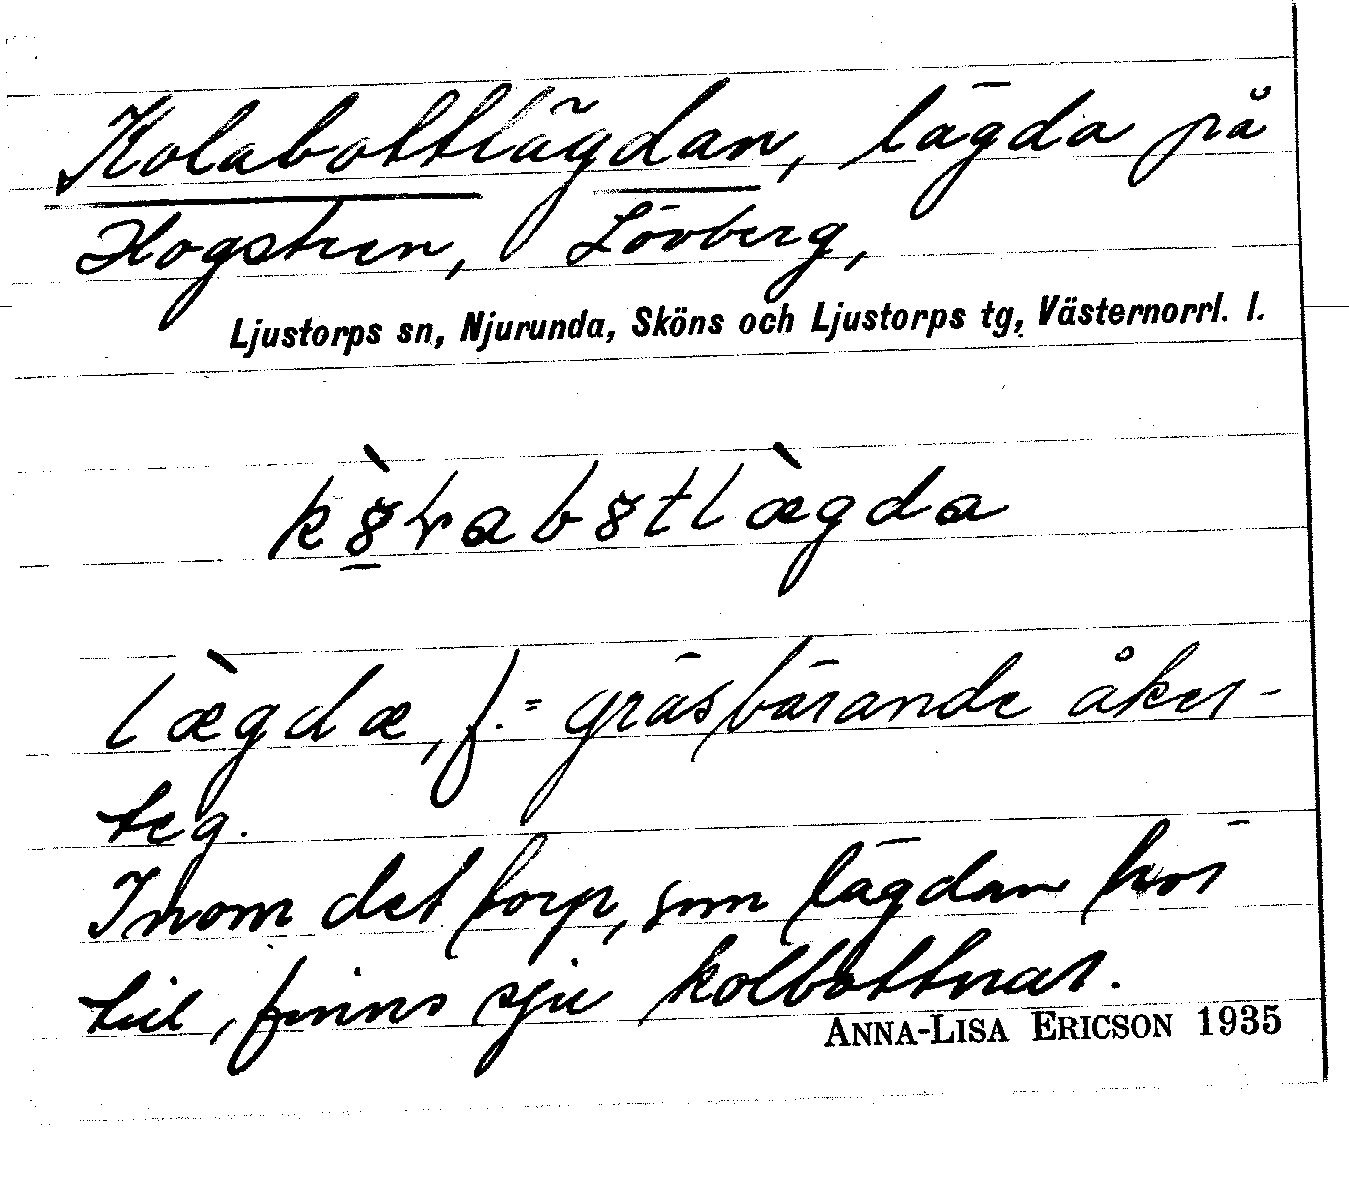 Kolabottlägdan, lägda på
Hogstren, Lövberg,
Ljustorps sn, Njurunda, Sköns och Ljustorps tg, Västernorrl. l.
lægdæ, f. = gräsbärande åker-
teg.
Inom det torp, som lägdan hör
till, finns sju kolbottnar.
ANNA-LISA ERICSON 1935